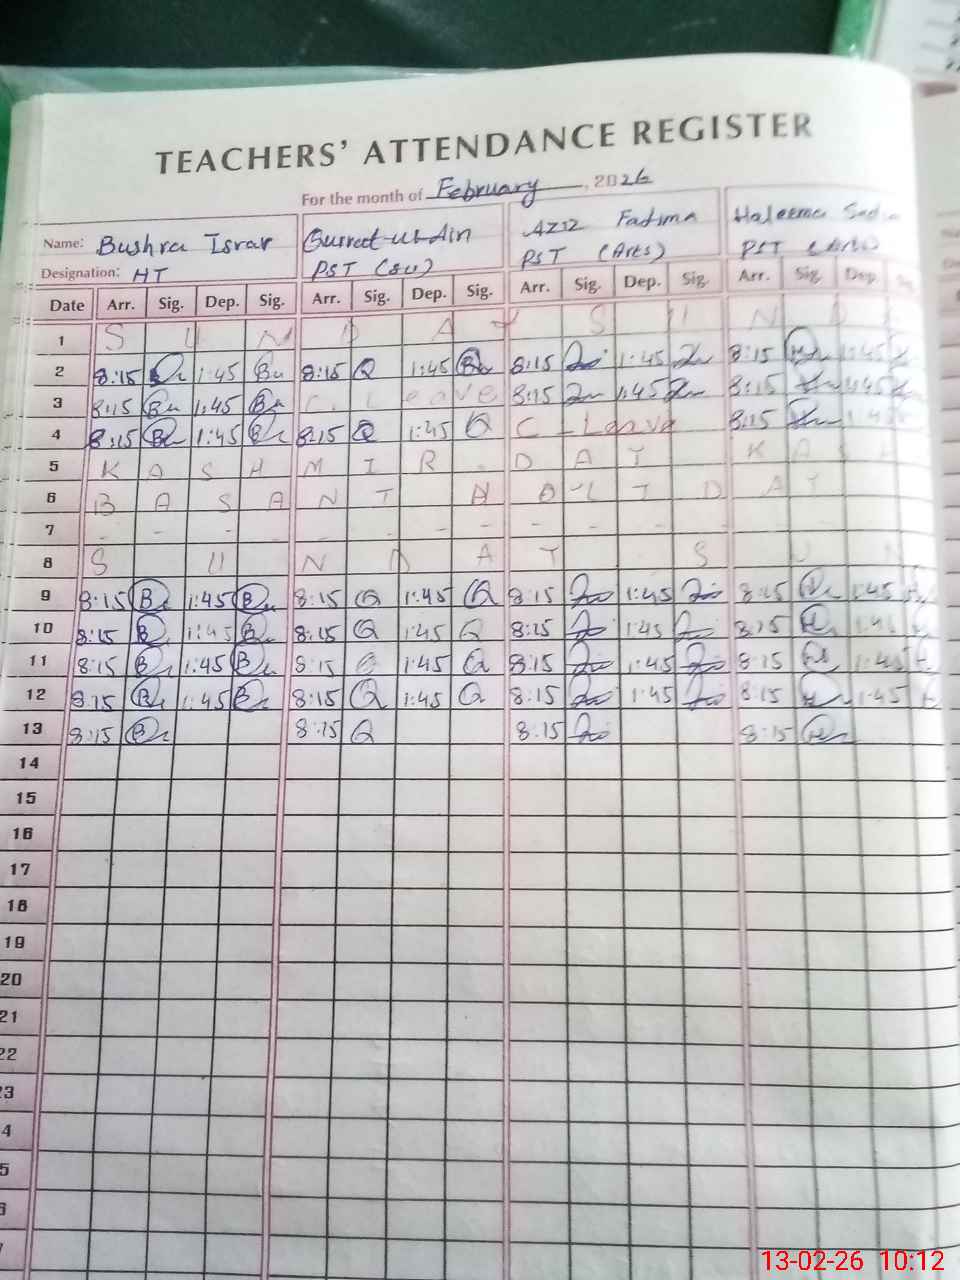 TEACHERS' ATTENDANCE REGISTER
For the month of February, 2026
Name: Bushra Israr Qurrat-ul-Ain Aziz Fatima Haleema Sadia
Designation: HT PST (Sci) PST (Arts) PST
Date Arr. Sig. Dep. Sig. Arr. Sig. Dep. Sig. Arr. Sig. Dep. Sig. Arr. Sig. Dep.
1 S U N D A Y S U N D
2 8:15 1:45 Bu 8:15 Q 1:45 8:15 1:45 8:15 1:45
3 8:15 Bu 1:45 Bu C. Leave 8:15 1:45 8:15 1:45
4 8:15 Bu 1:45 Bu 8:15 Q 1:45 Q C - Leave 8:15 1:45
5 K A S H M I R D A Y K A
6 B A S A N T H O L I D A Y
7 - - - - - - - - -
8 S U N D A Y S U N
9 8:15 B 1:45 B 8:15 Q 1:45 Q 8:15 1:45 8:15 1:45
10 8:15 B 1:45 B 8:15 Q 1:45 Q 8:15 1:45 8:15 1:45
11 8:15 B 1:45 B 8:15 Q 1:45 Q 8:15 1:45 8:15 1:45
12 8:15 B 1:45 B 8:15 Q 1:45 Q 8:15 1:45 8:15 1:45
13 8:15 B 8:15 Q 8:15 8:15
14
15
16
17
18
19
20
21
22
23
4
5
13-02-26 10:12